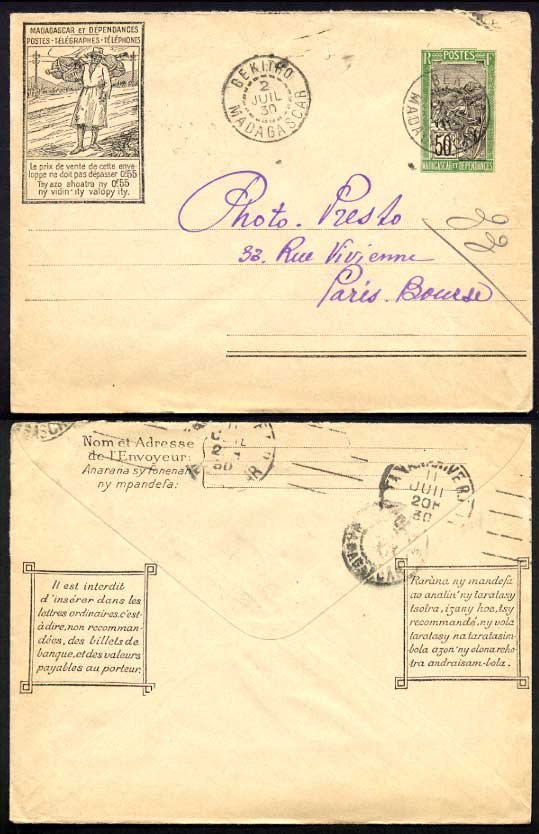 MADAGASCAR ET DEPENDANCES
POSTES - TÉLÉGRAPHES - TÉLÉPHONES
Le prix de vente de cette enve
loppe ne doit pas dépasser 0f55
Tsy azo ahoatra ny 0f55
ny vidin'ity valopy ity.
BEKITRO
2
JUIL
30
MADAGASCAR
R POSTES F
50c
MADAGASCAR ET DEPENDANCES
Photo. Presto
33, Rue Vivienne
Paris. Bourse
Nom et Adresse
de l'Envoyeur:
Anarana sy fonenana
ny mpandefa:
11
JUIL
20H
30
Il est interdit
d'insérer dans les
lettres ordinaires, c'est-
à dire, non recomman-
dées, des billets de
banque, et des valeurs
payables au porteur.
Raràna ny mandefa
ao anatin'ny taratasy
tsotra, izany hoe, tsy
recommandé, ny vola
taratasy na taratasim-
bola azon'ny olona rehe-
tra andraisam-bola.